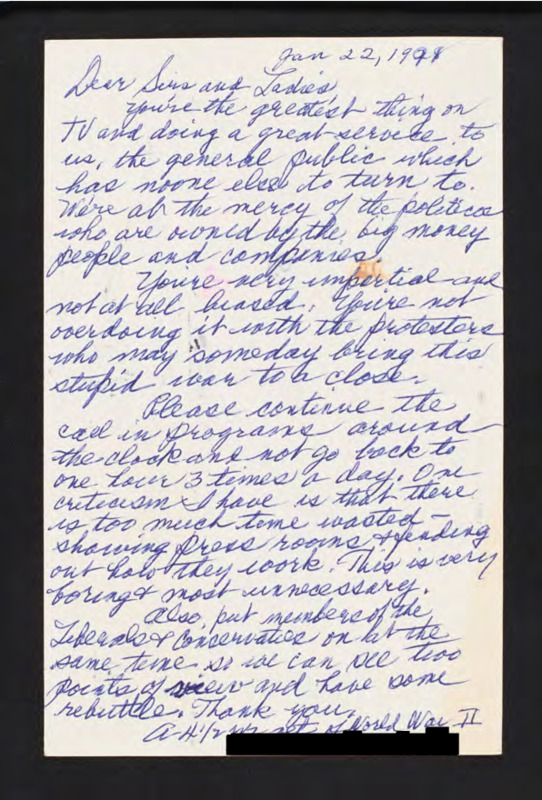 Jan 22, 1991
Dear Sirs and Ladies,
You're the greatest thing on
TV and doing a great service to
us, the general public which
has noone else to turn to.
We're at the mercy of the politics
who are owned by the big money
people and companies.
You're very impartial and
not at all biased. You're not
overdoing it with the protesters
who may someday bring this
stupid war to a close.
Please continue the
call in programs around
the clock and not go back to
one hour 3 times a day. One
criticism I have is that there
is too much time wasted -
showing press rooms & finding
out how they work. This is very
boring & most unnecessary.
Also, put members of the
Liberals & Conservatives on at the
same time so we can see two
points of view and have some
rebuttle. Thank you.
A 4 1/2 yr vet of World War II